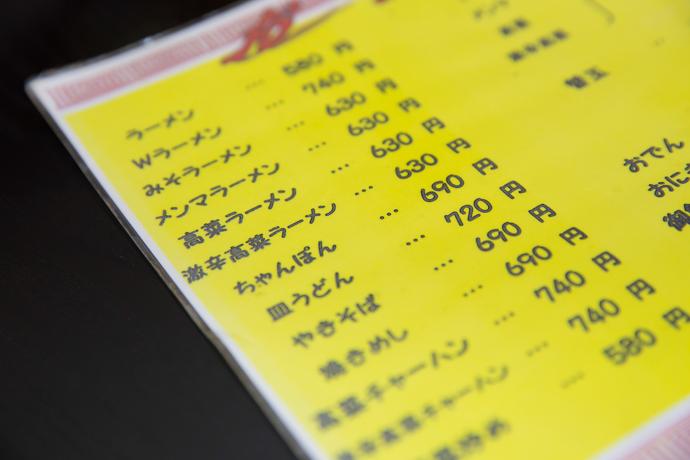 ラーメン … 580 円
Wラーメン … 740 円
みそラーメン … 630 円
メンマラーメン … 630 円
高菜ラーメン … 630 円
激辛高菜ラーメン … 630 円
ちゃんぽん … 690 円
皿うどん … 720 円
やきそば … 690 円
焼きめし … 690 円
高菜チャーハン … 740 円
激辛高菜チャーハン … 740 円
… 580 円
替玉
おでん
おにぎ